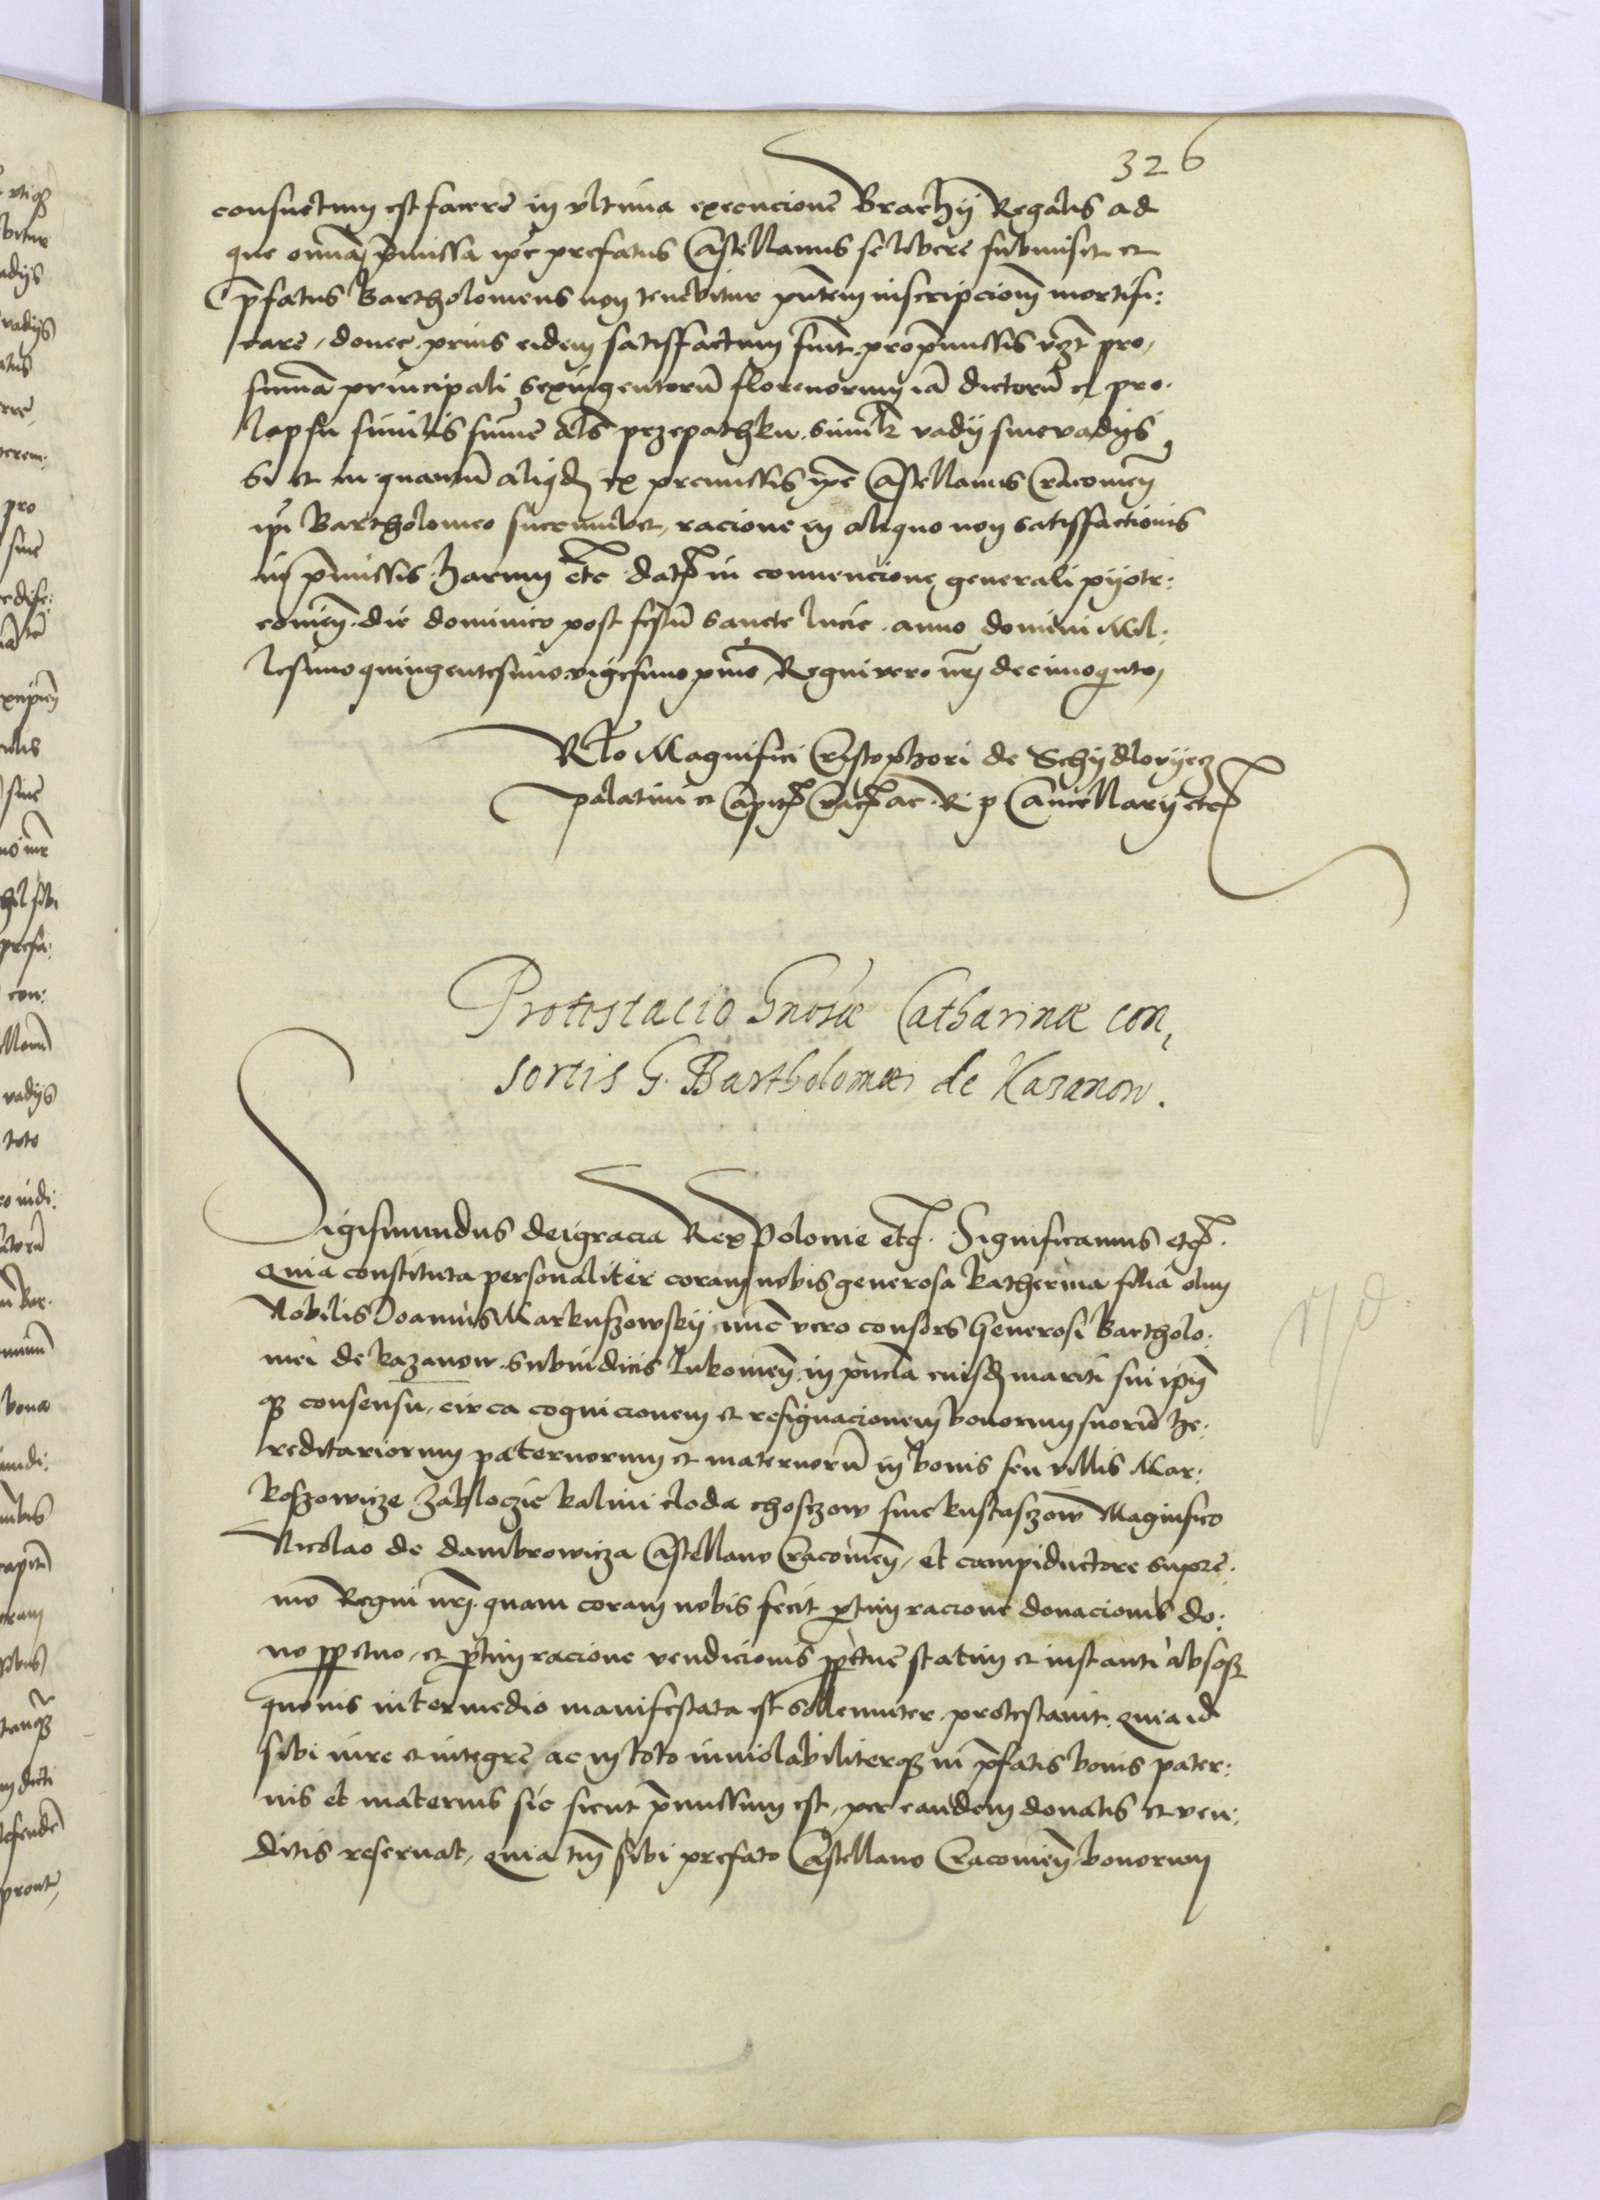 326
consuetum est facere in ultima execucione Brachij Regalis ad
que omnia p̄missa ip̄e prefatus Castellanus se libere submisit et
p̄fatus Bartholomeus non tenebitur p̄ntem inscripcionem mortifi:
care, donec prius eidem satisfactum fuit pro p̄missis vz̄t pro
summa principali sexingentorū florenorum iā dictorū et pro
lapsu similis sum̄e als przepathku similr vadij siue vadijs
si et in quantū aliqd ex premissis ip̄e Castellanus Cracouien̄
ip̄i Bartholomeo succumbet, racione in aliquo non satisfactionis
in p̄missis harum etc dat̄ in conuencione generali pijotr:
couien̄ die dominico post festū sancte lucie anno domini Mil:
lesimo quingentesimo vigesimo p̄mo Regni vero nrī decimoqūto
Rlo Magnifici Cristophori de Schydlovyecz
palatini et Capit̄ Crac̄ ac R p Cancellarij etc
Protestacio Gnosæ Catharinæ con,
sortis G. Bartholomæi de Kazanow.
Sigismundus dei gracia Rex Polonie etc. Significamus etc.
Quia constituta personaliter coram nobis generosa Katherina filia olim
Nobilis Joannis Markuszowskij nunc vero consors Generosi Bartholo:
mei de Kazanow Subiudicis Lukouien̄ in p̄ncia eiusd mariti sui ip̄iusq̄
q consensu, circa cognicionem et resignacionem bonorum suorū he:
reditariorum paternorum et maternorū in bonis seu villis Mar:
koszowicze Zablocze kalini cloda choszczow siue kustaszow Magnifico
Nicolao de dambrowicza Castellano Cracouien̄, et campiductore supre:
mo Regni nrī quam coram nobis fecit p̄tim racione donacionis do:
no pp̄etuo, et p̄tim racione vendicionis pp̄etue statim et instanti absq̄
quouis intermedio manifestata est sollenniter protestauit quia id
sibi iure et integre ac in toto inuiolabiliterq̄ in p̄fatis bonis pater:
nis et maternis sic sicut p̄missum est, per eandem donatis et ven:
ditis reseruat, quia tm̄ sibi prefato Castellano Cracouien̄ bonorum